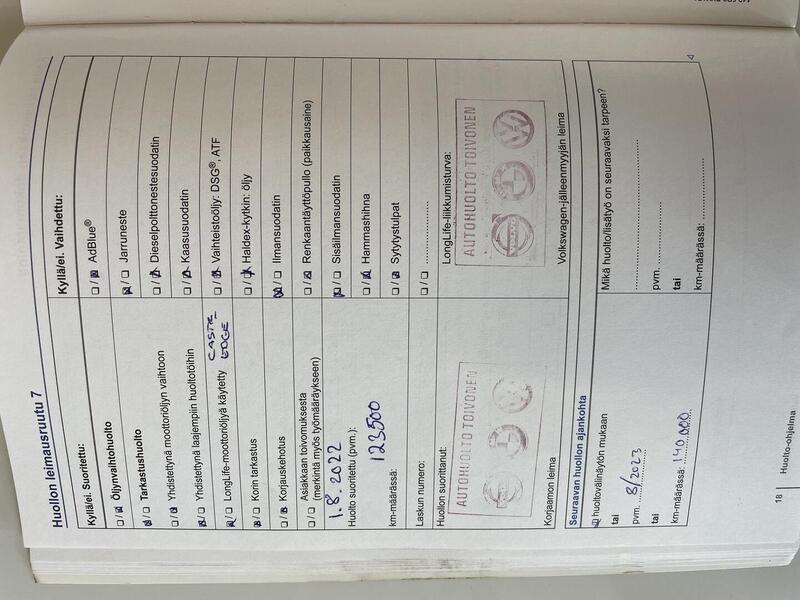 Huollon leimausruutu 7
Kyllä/ei. Suoritettu:
☐ / ☒ Öljynvaihtohuolto
☒ / ☐ Tarkastushuolto
☐ / ☒ Yhdistettynä moottoriöljyn vaihtoon
☒ / ☐ Yhdistettynä laajempiin huoltotöihin
☒ / ☐ LongLife-moottoriöljyä käytetty CASTR. EDGE
☒ / ☐ Korin tarkastus
☐ / ☒ Korjauskehotus
☐ / ☐ Asiakkaan toivomuksesta
(merkintä myös työmääräykseen)
1.8.2022
Huolto suoritettu (pvm.):
123500
km-määrässä:
Laskun numero:
Huollon suorittanut:
AUTOHUOLTO TOIVONEN
Korjaamon leima
Kyllä/ei. Vaihdettu:
☐ / ☒ AdBlue®
☒ / ☐ Jarruneste
☐ / ☒ Dieselpolttonestesuodatin
☐ / ☒ Kaasusuodatin
☐ / ☒ Vaihteistoöljy: DSG®, ATF
☐ / ☒ Haldex-kytkin: öljy
☒ / ☐ Ilmansuodatin
☐ / ☒ Renkaantäyttöpullo (paikkausaine)
☒ / ☐ Sisäilmansuodatin
☐ / ☒ Hammashihna
☐ / ☒ Sytytystulpat
☐ / ☐ ....................
LongLife-liikkumisturva:
AUTOHUOLTO TOIVONEN
VOLVO
Volkswagen-jälleenmyyjän leima
Seuraavan huollon ajankohta
☒ huoltovälinäytön mukaan
tai
pvm. 8/2023
tai
km-määrässä: 140.000
Mikä huolto/lisätyö on seuraavaksi tarpeen?
....................
pvm. ....................
tai
km-määrässä: ....................
18 | Huolto-ohjelma